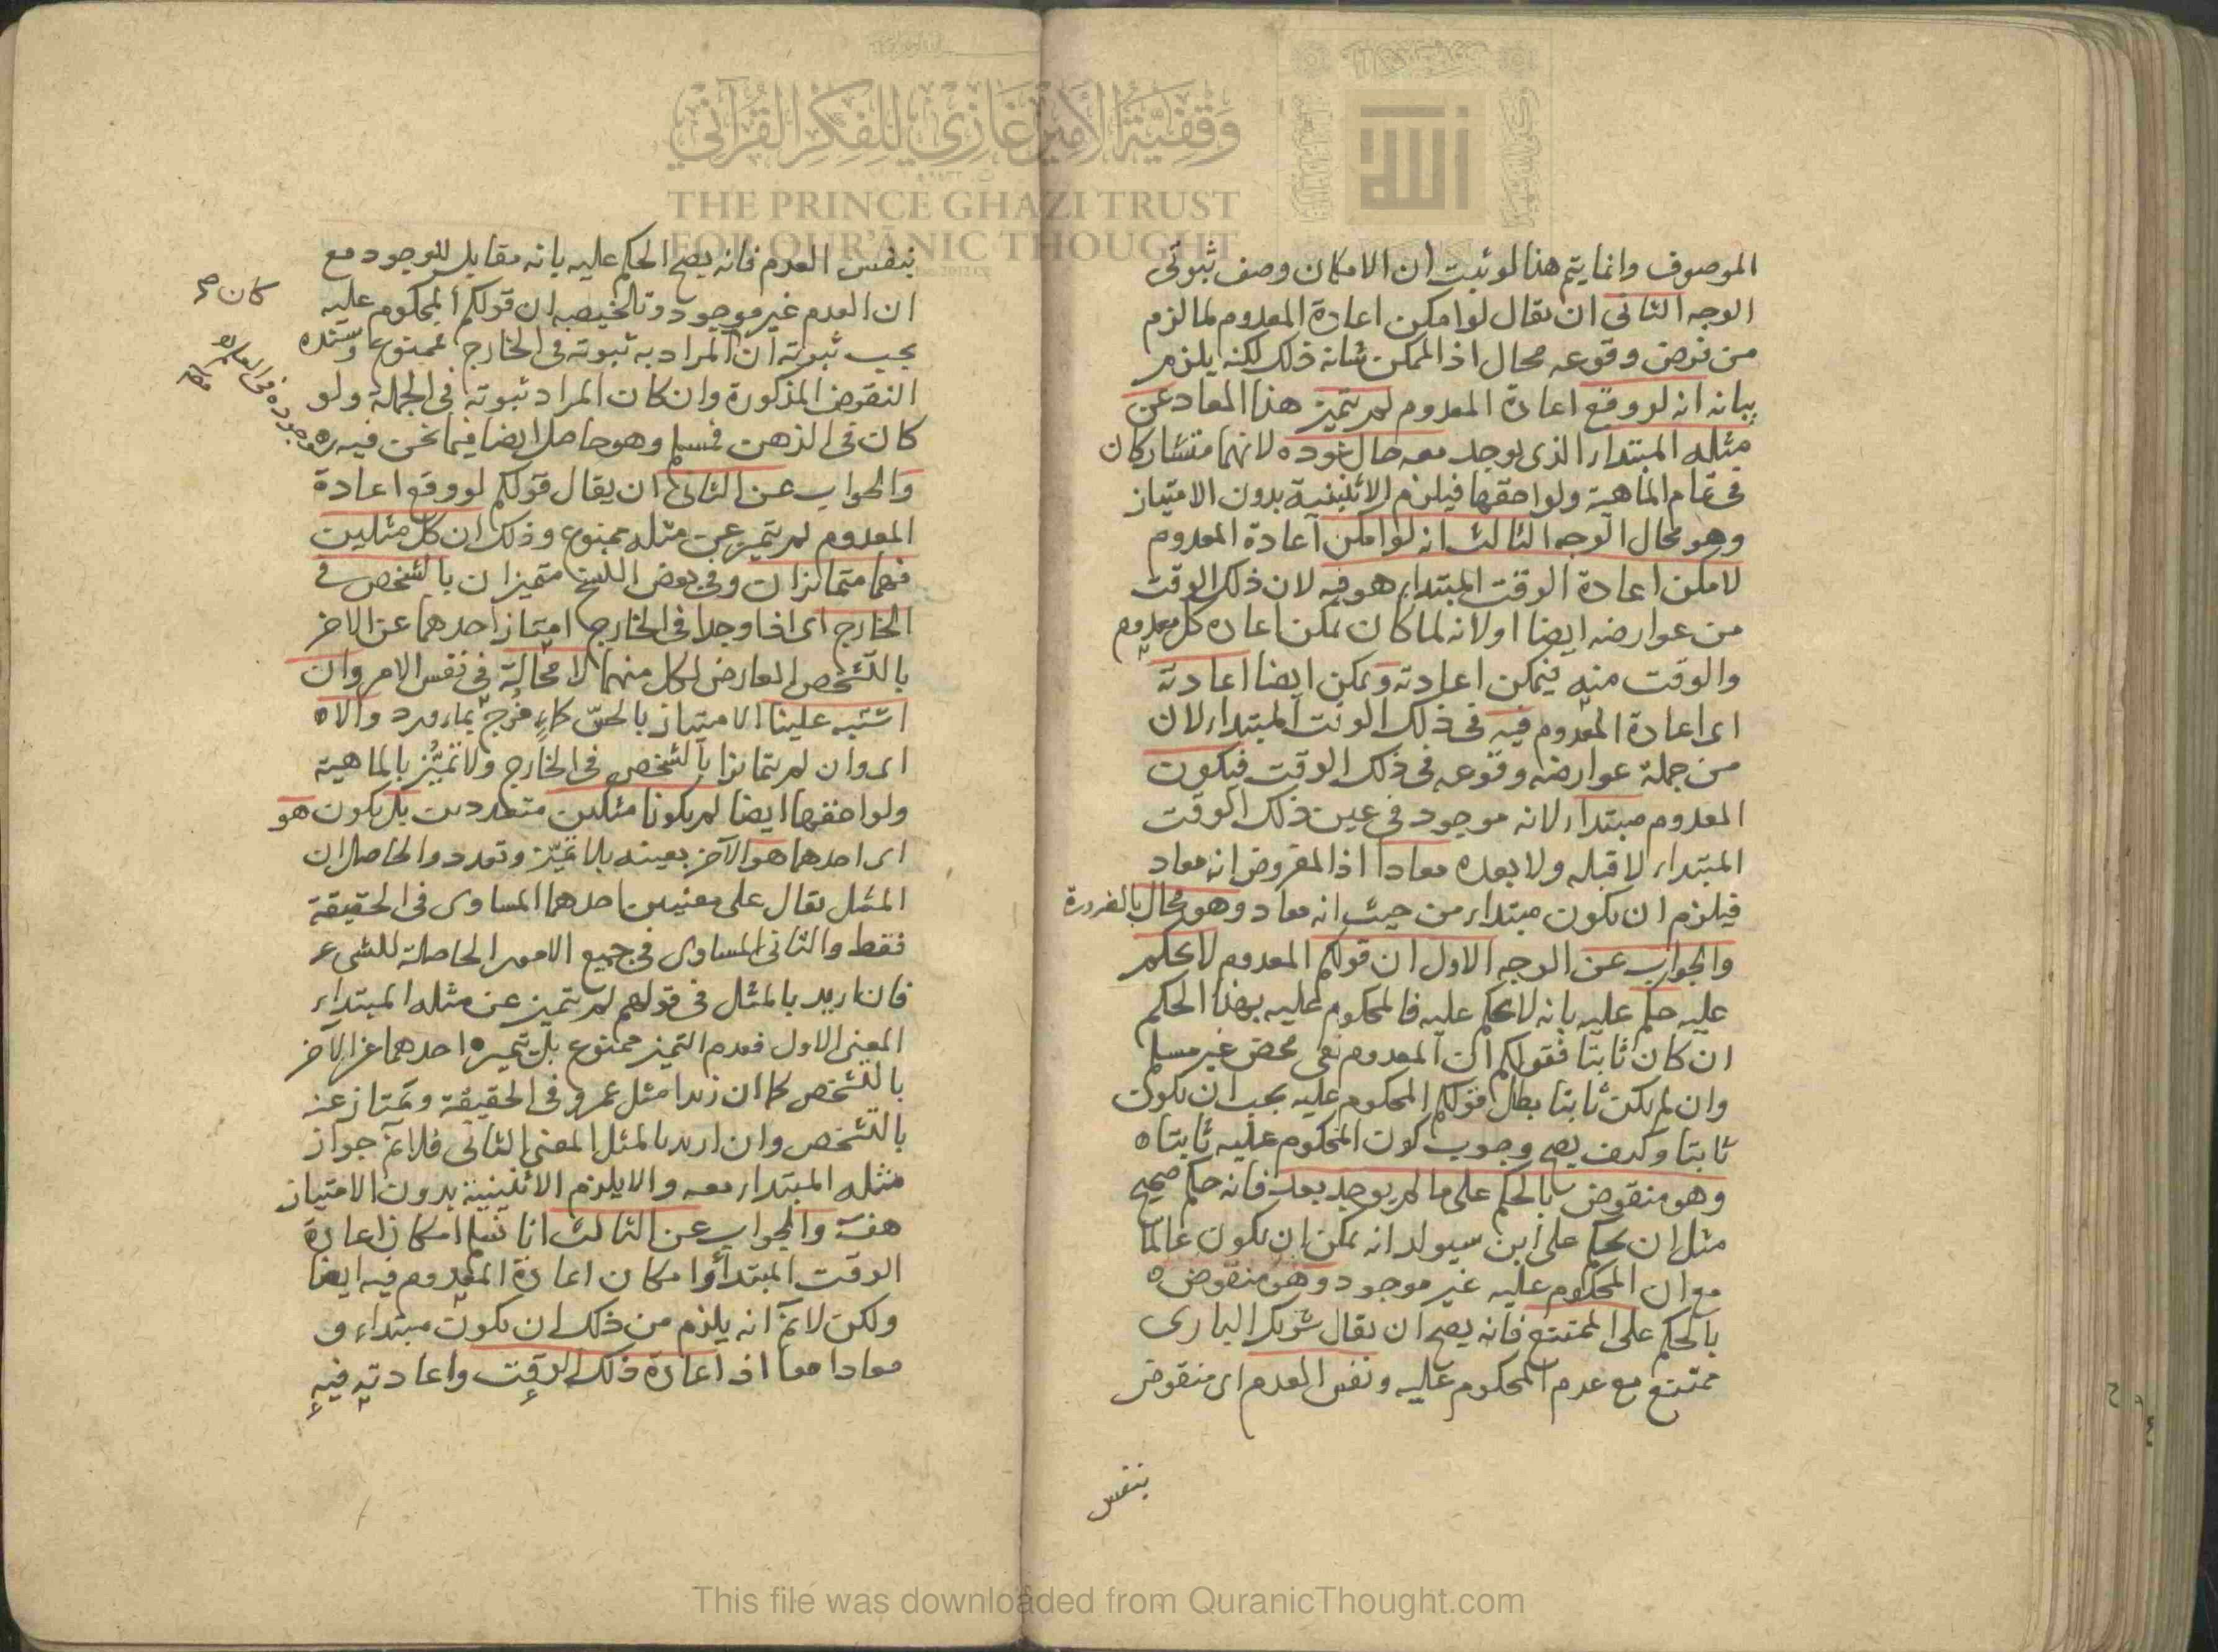 وقفية الأمير غازي للفكر القرآني
THE PRINCE GHAZI TRUST
FOR QUR'ĀNIC THOUGHT
الله
الموصوف وانما يتم هذا لو ثبت ان الامكان وصف ثبوتى
الوجه الثانى ان يقال لو امكن اعادة المعدوم لما لزم
من فرض وقوعه محال اذ الممكن شانه ذلك لكنه يلزم
بيانه انه لو وقع اعادة المعدوم لم يتميز هذا المعاد عن
مثله المبتداء الذى يوجد معه حال عوده لانهما متشاركان
فى تمام الماهية ولواحقها فيلزم الاثنينية بدون الامتياز
وهو محال الوجه الثالث انه لو امكن اعادة المعدوم
لامكن اعادة الوقت المبتداء هو فيه لان ذلك الوقت
من عوارضه ايضا او لانه لما كان يمكن اعادة كل معدوم
والوقت منه فيمكن اعادته ويمكن ايضا اعادته
اى اعادة المعدوم فيه فى ذلك الوقت المبتداء لان
من جملة عوارضه وقوعه فى ذلك الوقت فيكون
المعدوم مبتداء لانه موجود فى عين ذلك الوقت
المبتداء لا قبله ولا بعده معادا اذ المفروض انه معاد
فيلزم ان يكون مبتداء من حيث انه معاد وهو محال بالضرورة
والجواب عن الوجه الاول ان قولكم المعدوم لا يحكم
عليه حكم عليه بانه لا يحكم عليه فالمحكوم عليه بهذا الحكم
ان كان ثابتا فقولكم ان المعدوم نفى محض غير مسلم
وان لم يكن ثابتا بطل قولكم المحكوم عليه يجب ان يكون
ثابتا وكيف يصح وجوب كون المحكوم عليه ثابتا ه
وهو منقوض بالحكم على ما لم يوجد بعد فانه حكم صحيح
مثل ان يحكم على ابن سيولد انه يمكن ان يكون عالما
مع ان المحكوم عليه غير موجود وهو منقوض ه
بالحكم على الممتنع فانه يصح ان يقال شريك البارى
ممتنع مع عدم المحكوم عليه ونفس العدم اى منقوض
بنفس
بنفس العدم فانه يصح الحكم عليه بانه مقابل للوجود مع
ان العدم غير موجود وتلخيصه ان قولكم المحكوم عليه
يجب ثبوته ان المراد به ثبوته فى الخارج فممنوع وسنده
النقوض المذكورة وان كان المراد ثبوته فى الجملة ولو
كان فى الذهن فمسلم وهو حاصل ايضا فيما نحن فيه
والجواب عن الثانى ان يقال قولكم لو وقع اعادة
المعدوم لم يتميز عن مثله ممنوع وذلك ان كل مثلين
فهما متمايزان وفى بعض النسخ متميزان بالشخص فى
الخارج اى اذا وجدا فى الخارج امتاز احدهما عن الاخر
بالتشخص العارض لكل منهما لا محالة فى نفس الامر وان
اشتبه علينا الامتياز بالحس كماء مزج بماء ورد والا ه
اى وان لم يتمايزا بالشخص فى الخارج ولا تميز بالماهية
ولواحقها ايضا لم يكونا مثلين متعددين بل يكون هو
اى احدهما هو الآخر بعينه بلا تميز وتعدد والحاصل ان
المثل يقال على معنيين احدهما المساوى فى الحقيقة
فقط والثانى المساوى فى جميع الامور الحاصلة للشىء
فان اريد بالمثل فى قولهم لم يتميز عن مثله المبتداء
المعنى الاول فعدم التميز ممنوع بل تميز ه احدهما عن الآخر
بالتشخص كما ان زيدا مثل عمرو فى الحقيقة ويمتاز عنه
بالتشخص وان اريد بالمثل المعنى الثانى فلا نم جواز
مثله المبتداء معه والا يلزم الاثنينية بدون الامتياز
هف والجواب عن الثالث انا نسلم امكان اعادة
الوقت المبتدأ وامكان اعادة المعدوم فيه ايضا
ولكن لا نم انه يلزم من ذلك ان يكون مبتداء و
معادا معا اذ اعادة ذلك الوقت واعادته فيه
كان صح
This file was downloaded from QuranicThought.com